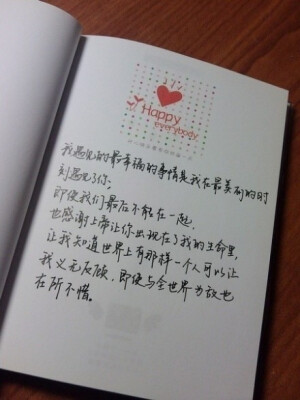 Happy
everybody
我遇见的最幸福的事情是我在最美的时
刻遇见了你，
即便我们最后不能在一起，
也感谢上帝让你出现在了我的生命里，
让我知道世界上有那样一个人可以让
我义无反顾，即使与全世界为敌也
在所不惜。